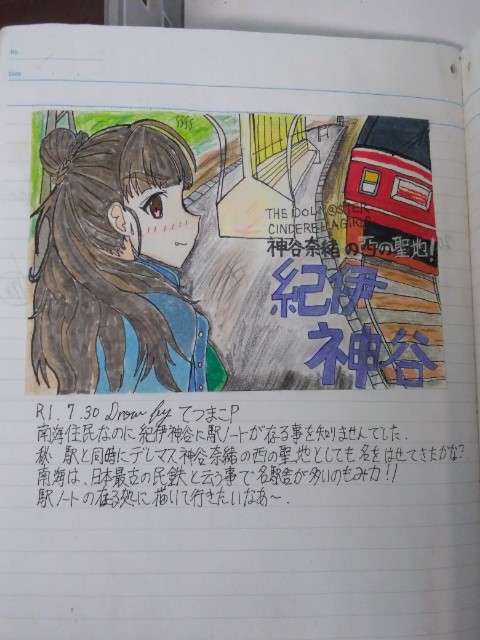 No.
Date
THE IDOLM@STER
CINDERELLA GIRLS
神谷奈緒の西の聖地!
紀伊
神谷
R1.7.30 Drow by てつまこP
南海住民なのに紀伊神谷に駅ノートが在る事を知りませんでした.
秘 駅と同時にデレマス神谷奈緒の西の聖地としても 名をはせてきたかな?
南海は、日本最古の民鉄と云う事で名駅舎が多いのもみ力!!
駅ノートの在る処に描いて行きたいなあ〜.